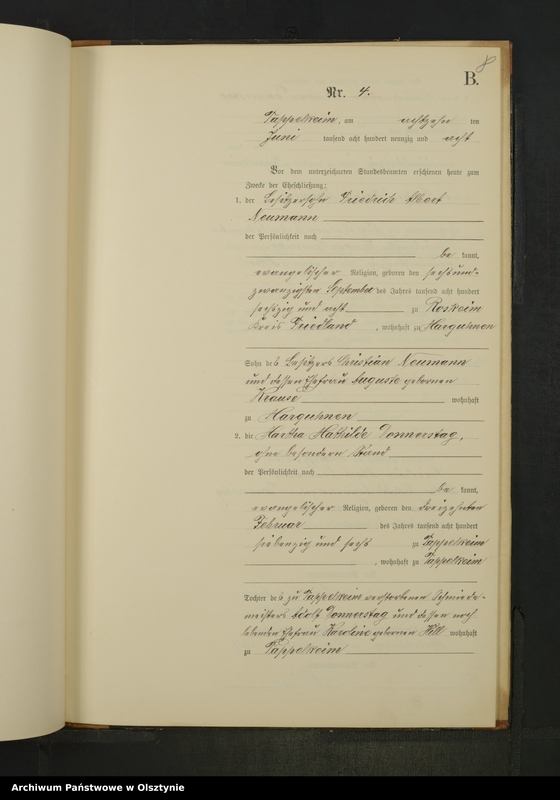 8
B.
Nr. 4.
Tappelkeim, am achtzehn ten
Juni tausend acht hundert neunzig und acht
Vor dem unterzeichneten Standesbeamten erschienen heute zum
Zwecke der Eheschließung:
1. der Besitzersohn Friedrich Albert
Neumann
der Persönlichkeit nach
be kannt,
evangelischer Religion, geboren den sechsund-
zwanzigsten September des Jahres tausend acht hundert
sechszig und acht zu Roskeim
Kreis Friedland, wohnhaft zu Marguhnen
Sohn des Besitzers Christian Neumann
und dessen Ehefrau Auguste geborenen
Krause wohnhaft
zu Marguhnen
2. die Martha Mathilde Donnerstag,
ohne besondern Stand
der Persönlichkeit nach
be kannt,
evangelischer Religion, geboren den dreizehnten
Februar des Jahres tausend acht hundert
siebenzig und sechs zu Tappelkeim
, wohnhaft zu Tappelkeim
Tochter des zu Tappelkeim verstorbenen Schmiede-
meisters Adolf Donnerstag und dessen noch
lebenden Ehefrau Karoline geborenen Hill wohnhaft
zu Tappelkeim
Archiwum Państwowe w Olsztynie